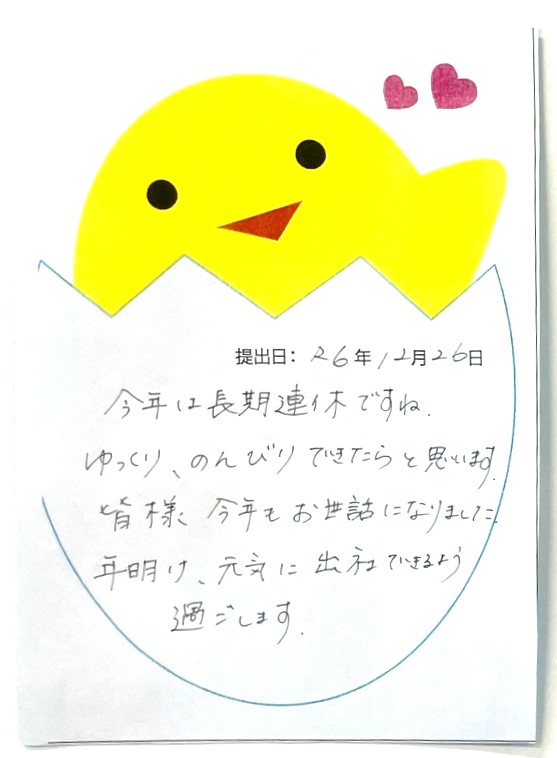 提出日：26年12月26日
今年は長期連休ですね.
ゆっくり、のんびりできたらと思います.
皆様 今年もお世話になりました.
年明け、元気に出社できるよう
過ごします.